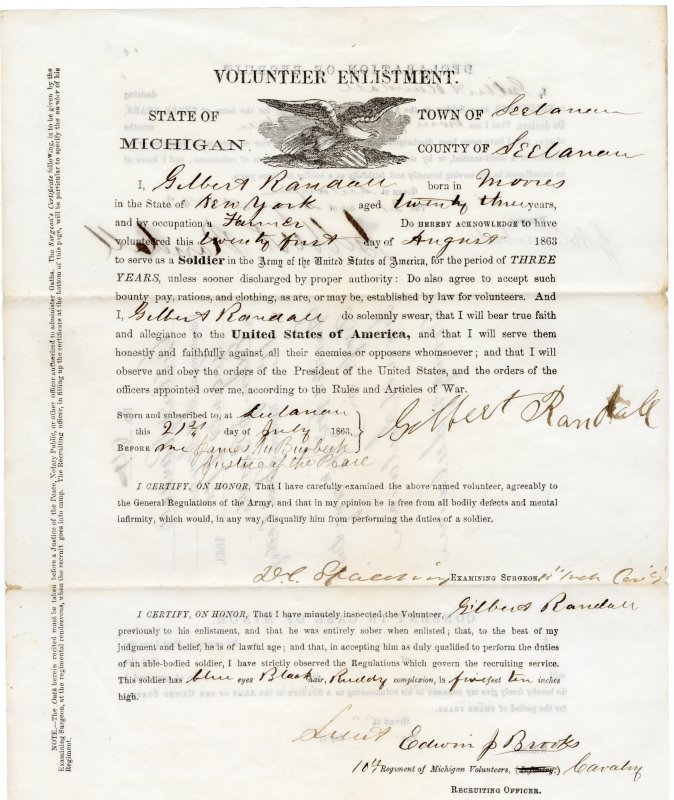 VOLUNTEER ENLISTMENT.
STATE OF
MICHIGAN.
TOWN OF Leelanau
COUNTY OF Leelanau
I, Gilbert Randall born in Mooers
in the State of New York aged twenty three years,
and by occupation a Farmer Do HEREBY ACKNOWLEDGE to have
volunteered this twenty first day of August 1863
to serve as a Soldier in the Army of the United States of America, for the period of THREE
YEARS, unless sooner discharged by proper authority: Do also agree to accept such
bounty pay, rations, and clothing, as are, or may be, established by law for volunteers. And
I, Gilbert Randall do solemnly swear, that I will bear true faith
and allegiance to the United States of America, and that I will serve them
honestly and faithfully against all their enemies or opposers whomsoever; and that I will
observe and obey the orders of the President of the United States, and the orders of the
officers appointed over me, according to the Rules and Articles of War.
Sworn and subscribed to, at Leelanau
this 21st day of July 1863,
BEFORE me James M Burbeck
Justice of the Peace
Gilbert Randall
I CERTIFY, ON HONOR, That I have carefully examined the above named volunteer, agreeably to
the General Regulations of the Army, and that in my opinion he is free from all bodily defects and mental
infirmity, which would, in any way, disqualify him from performing the duties of a soldier.
D.C. Spalding EXAMINING SURGEON, 10th Mich Cav'y
I CERTIFY, ON HONOR, That I have minutely inspected the Volunteer, Gilbert Randall
previously to his enlistment, and that he was entirely sober when enlisted; that, to the best of my
judgment and belief, he is of lawful age; and that, in accepting him as duly qualified to perform the duties
of an able-bodied soldier, I have strictly observed the Regulations which govern the recruiting service.
This soldier has blue eyes Black hair, Ruddy complexion, is five feet ten inches
high.
Lieut Edwin J Brooks
10th Regiment of Michigan Volunteers, (Infantry.) Cavalry
RECRUITING OFFICER.
NOTE.—The Oath herein recited must be taken before a Justice of the Peace, Notary Public, or other officer authorized to administer Oaths. The Surgeon's Certificate following, is to be given by the
Examining Surgeon, at the regimental rendezvous, when the recruit goes into camp. The Recruiting officer, in filling up the certificate at the bottom of this page, will be particular to specify the number of his
Regiment.